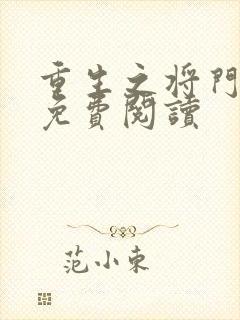 重生之将門
免費閱讀
范小東